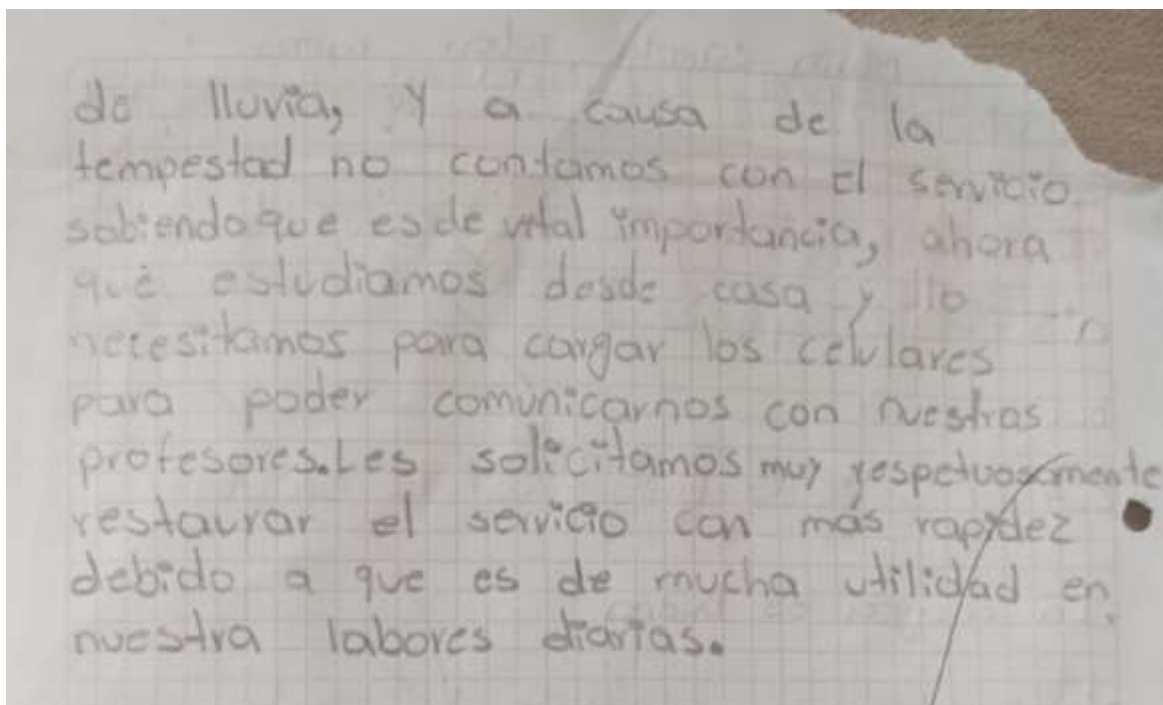 de lluvia, y a causa de la
tempestad no contamos con el servicio
sabiendo que es de vital importancia, ahora
qué estudiamos desde casa y lo
necesitamos para cargar los celulares
para poder comunicarnos con nuestros
profesores. Les solicitamos muy respetuosamente
restaurar el servicio con más rapidez
debido a que es de mucha utilidad en
nuestra labores diarias.